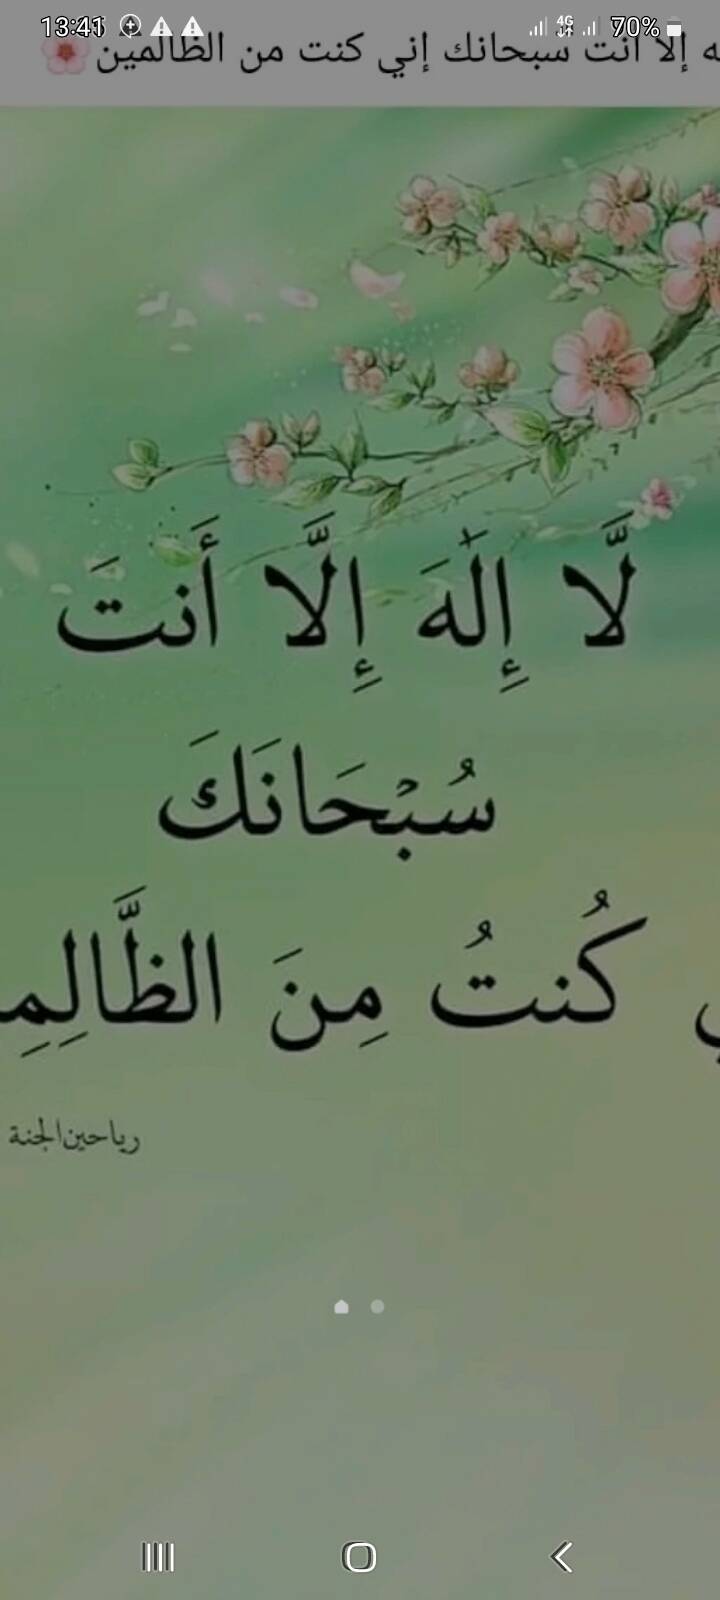 13:41 4G 70%
ه إلا أنت سبحانك إني كنت من الظالمين🌸
لَّا إِلَٰهَ إِلَّا أَنتَ
سُبْحَانَكَ
ي كُنتُ مِنَ الظَّالِمِ
رياحين الجنة